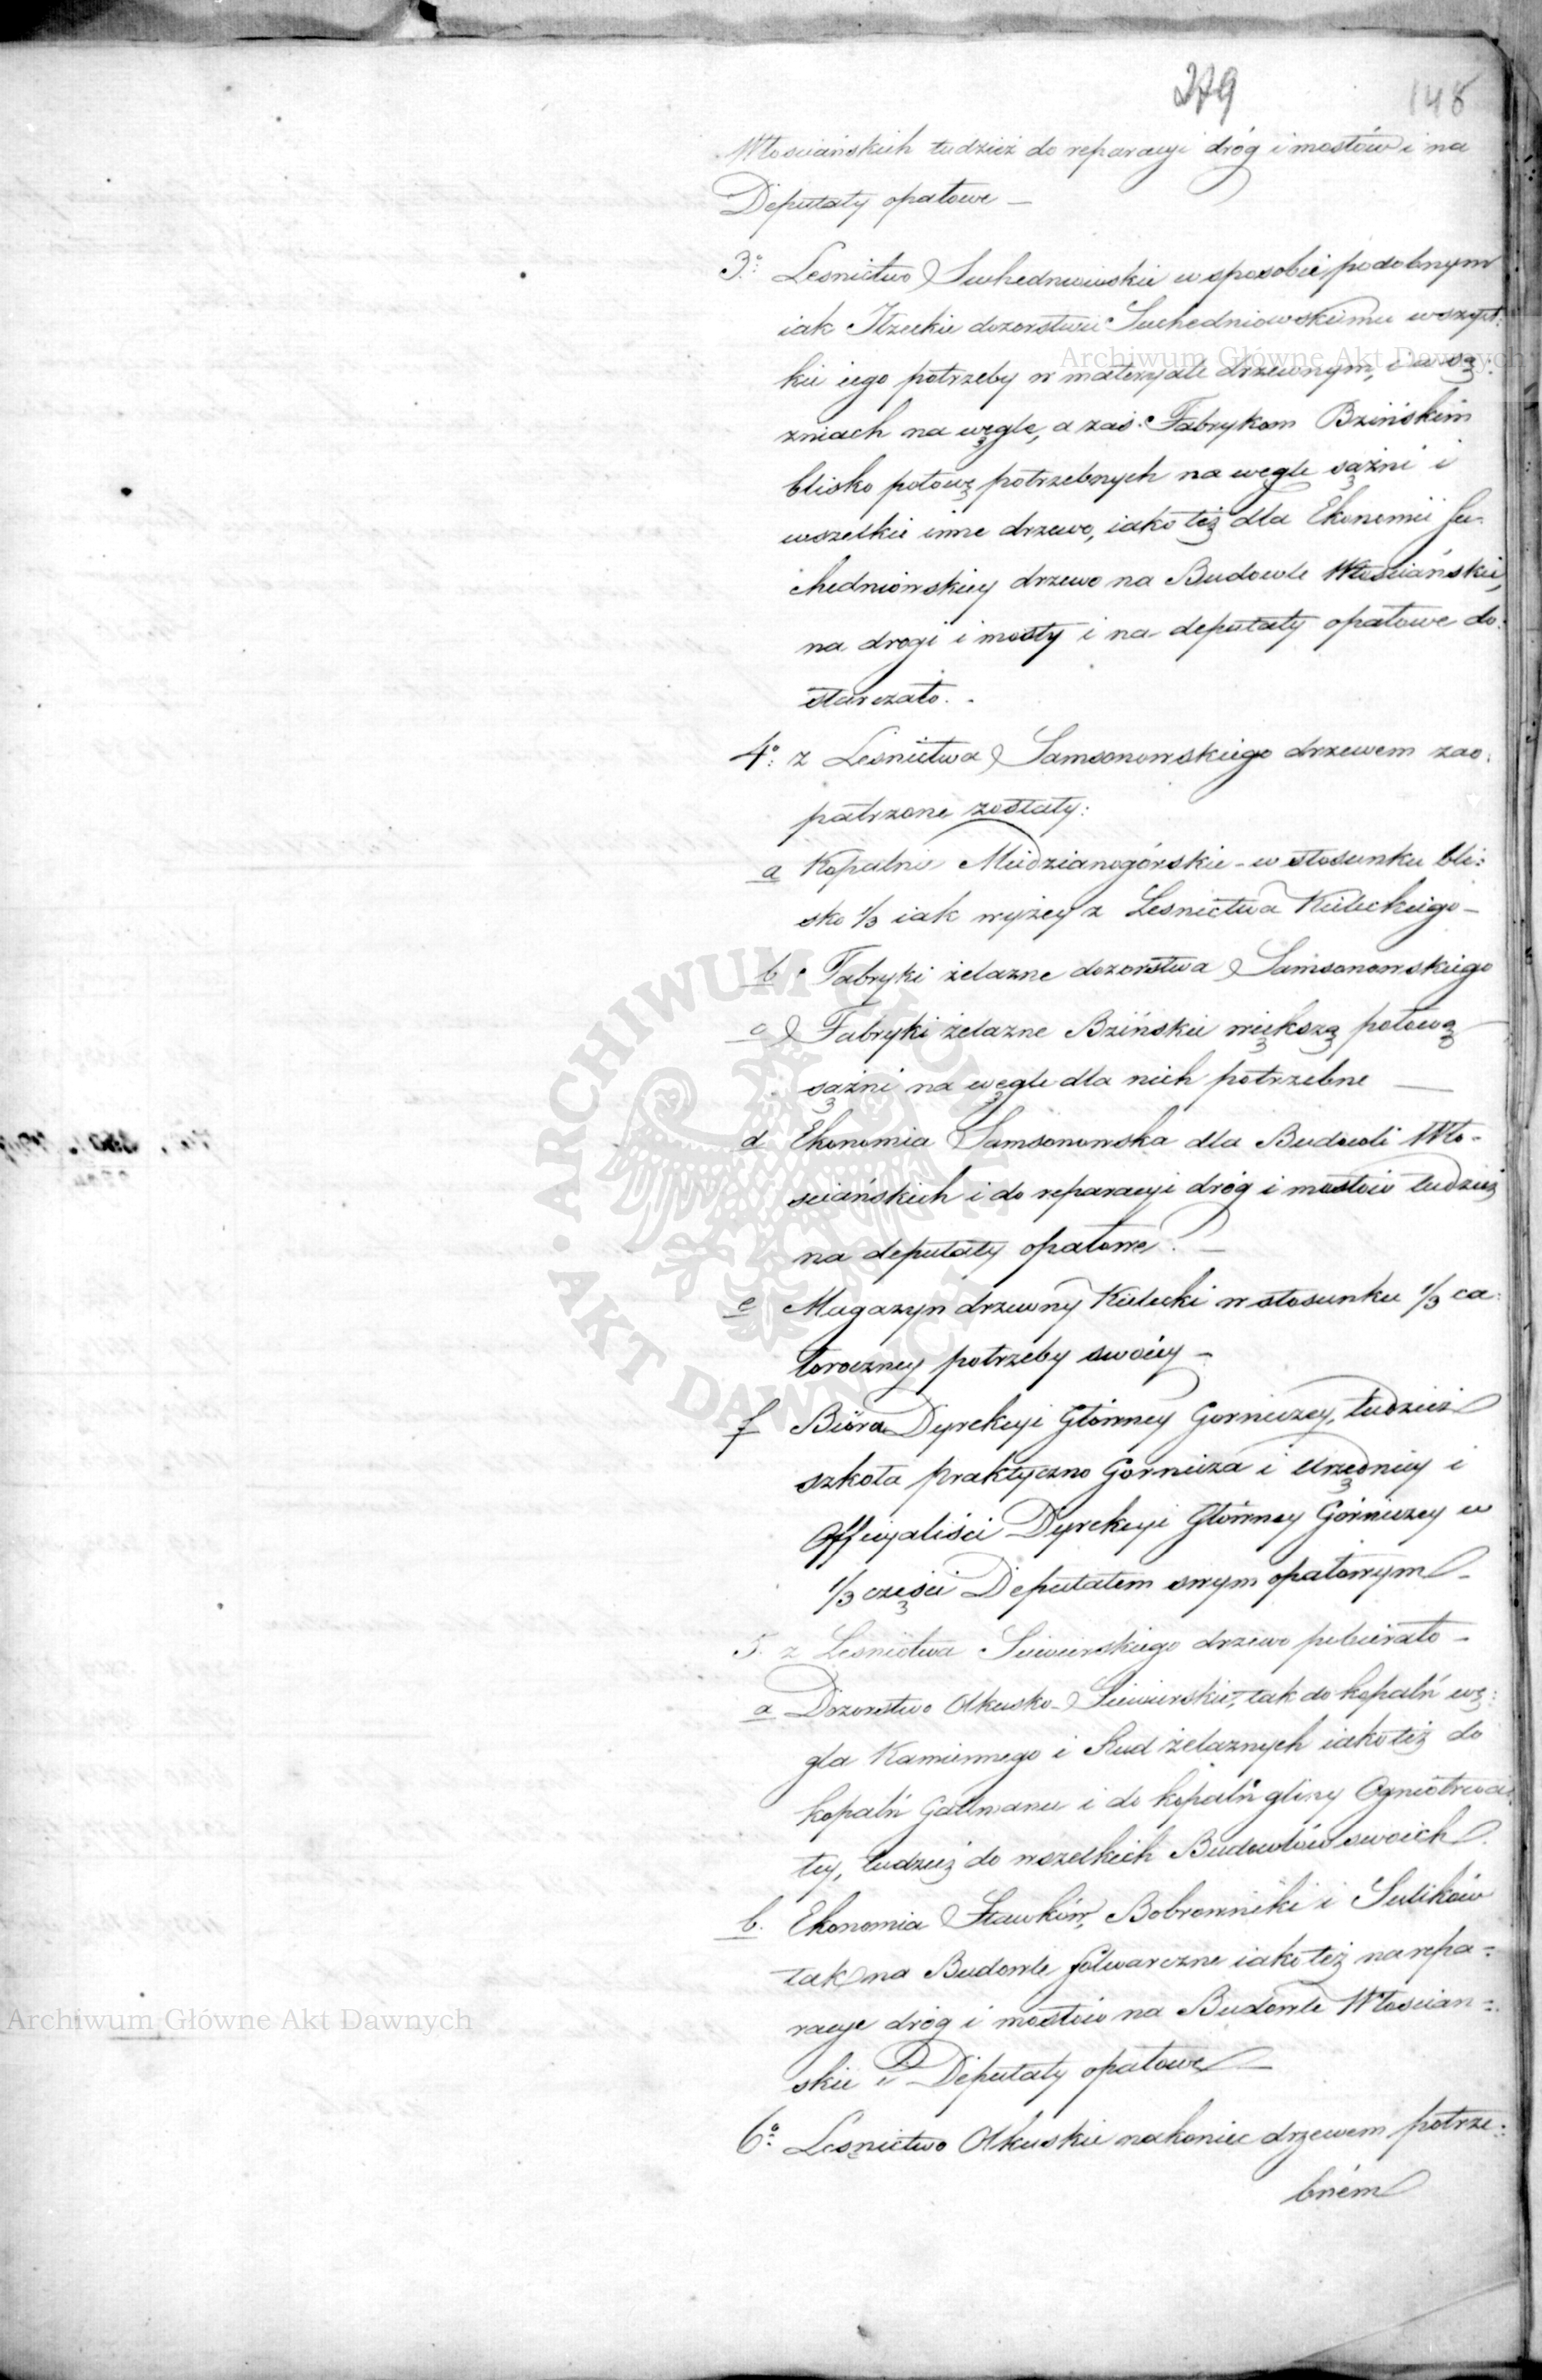 279 148
Włosciańskich tudzież do reparacyi dróg i mostów i na
Deputaty opałowe –
3º: Lesnictwo Suchedniowskie w sposobie podobnym
iak Iłzeckie dozorstwu Suchedniowskiemu wszyst:
kie iego potrzeby w materyale drzewnym, i w są:
zniach na węgle, a zaś Fabrykom Bzińskim
blisko połowę potrzebnych na węgle sążni i
wszelkie inne drzewo, iako też dla Ekonomii Su:
chedniowskiey drzewo na Budowle Włosciańskie,
na drogi i mosty i na deputaty opałowe do:
starczało. -
4º: z Lesnictwa Samsonowskiego drzewem zao:
patrzone zostały:
a Kopalnie Miedzianogórskie – w stosunku bli:
sko 1/3 iak wyżey z Lesnictwa Kieleckiego –
b Fabryki żelazne dozorstwa Samsonowskiego
c Fabryki żelazne Bzińskie większą połową
sążni na węgle dla nich potrzebne —
d Ekonomia Samsonowska dla Budowli Wło-
sciańskich i do reparacyi dróg i mostów tudzież
na deputaty opałowe. –
e Magazyn drzewny Kielecki w stosunku 1/3 ca:
łoroczney potrzeby swoiey –
f Bióra Dyrekcyi Główney Gorniczey, tudzież
szkoła praktyczno Gornicza i Urzędnicy i
Officyaliści Dyrekcyi Główney Górniczey w
1/3 części Deputatem swym opałowym –
5. z Lesnictwa Siewierskiego drzewo pobierało –
a Dozorstwo Olkusko-Siewierskie, tak do kopalń wę:
gla Kamiennego i Rud żelaznych iako też do
kopalń Galmanu i do kopalń gliny Ogniotrwa:
łey, tudzież do wszelkich Budowlów swoich.
b. Ekonomia Sławków, Bobrowniki i Sulików
tak na Budowle folwarczne iako też na repa-
racye dróg i mostów na Budowle Włoscian-
skie i Deputaty opałowe –
6º: Lesnictwo Olkuskie nakoniec drzewem potrze:
bném
Archiwum Główne Akt Dawnych
ARCHIWUM GŁÓWNE • AKT DAWNYCH
Archiwum Główne Akt Dawnych